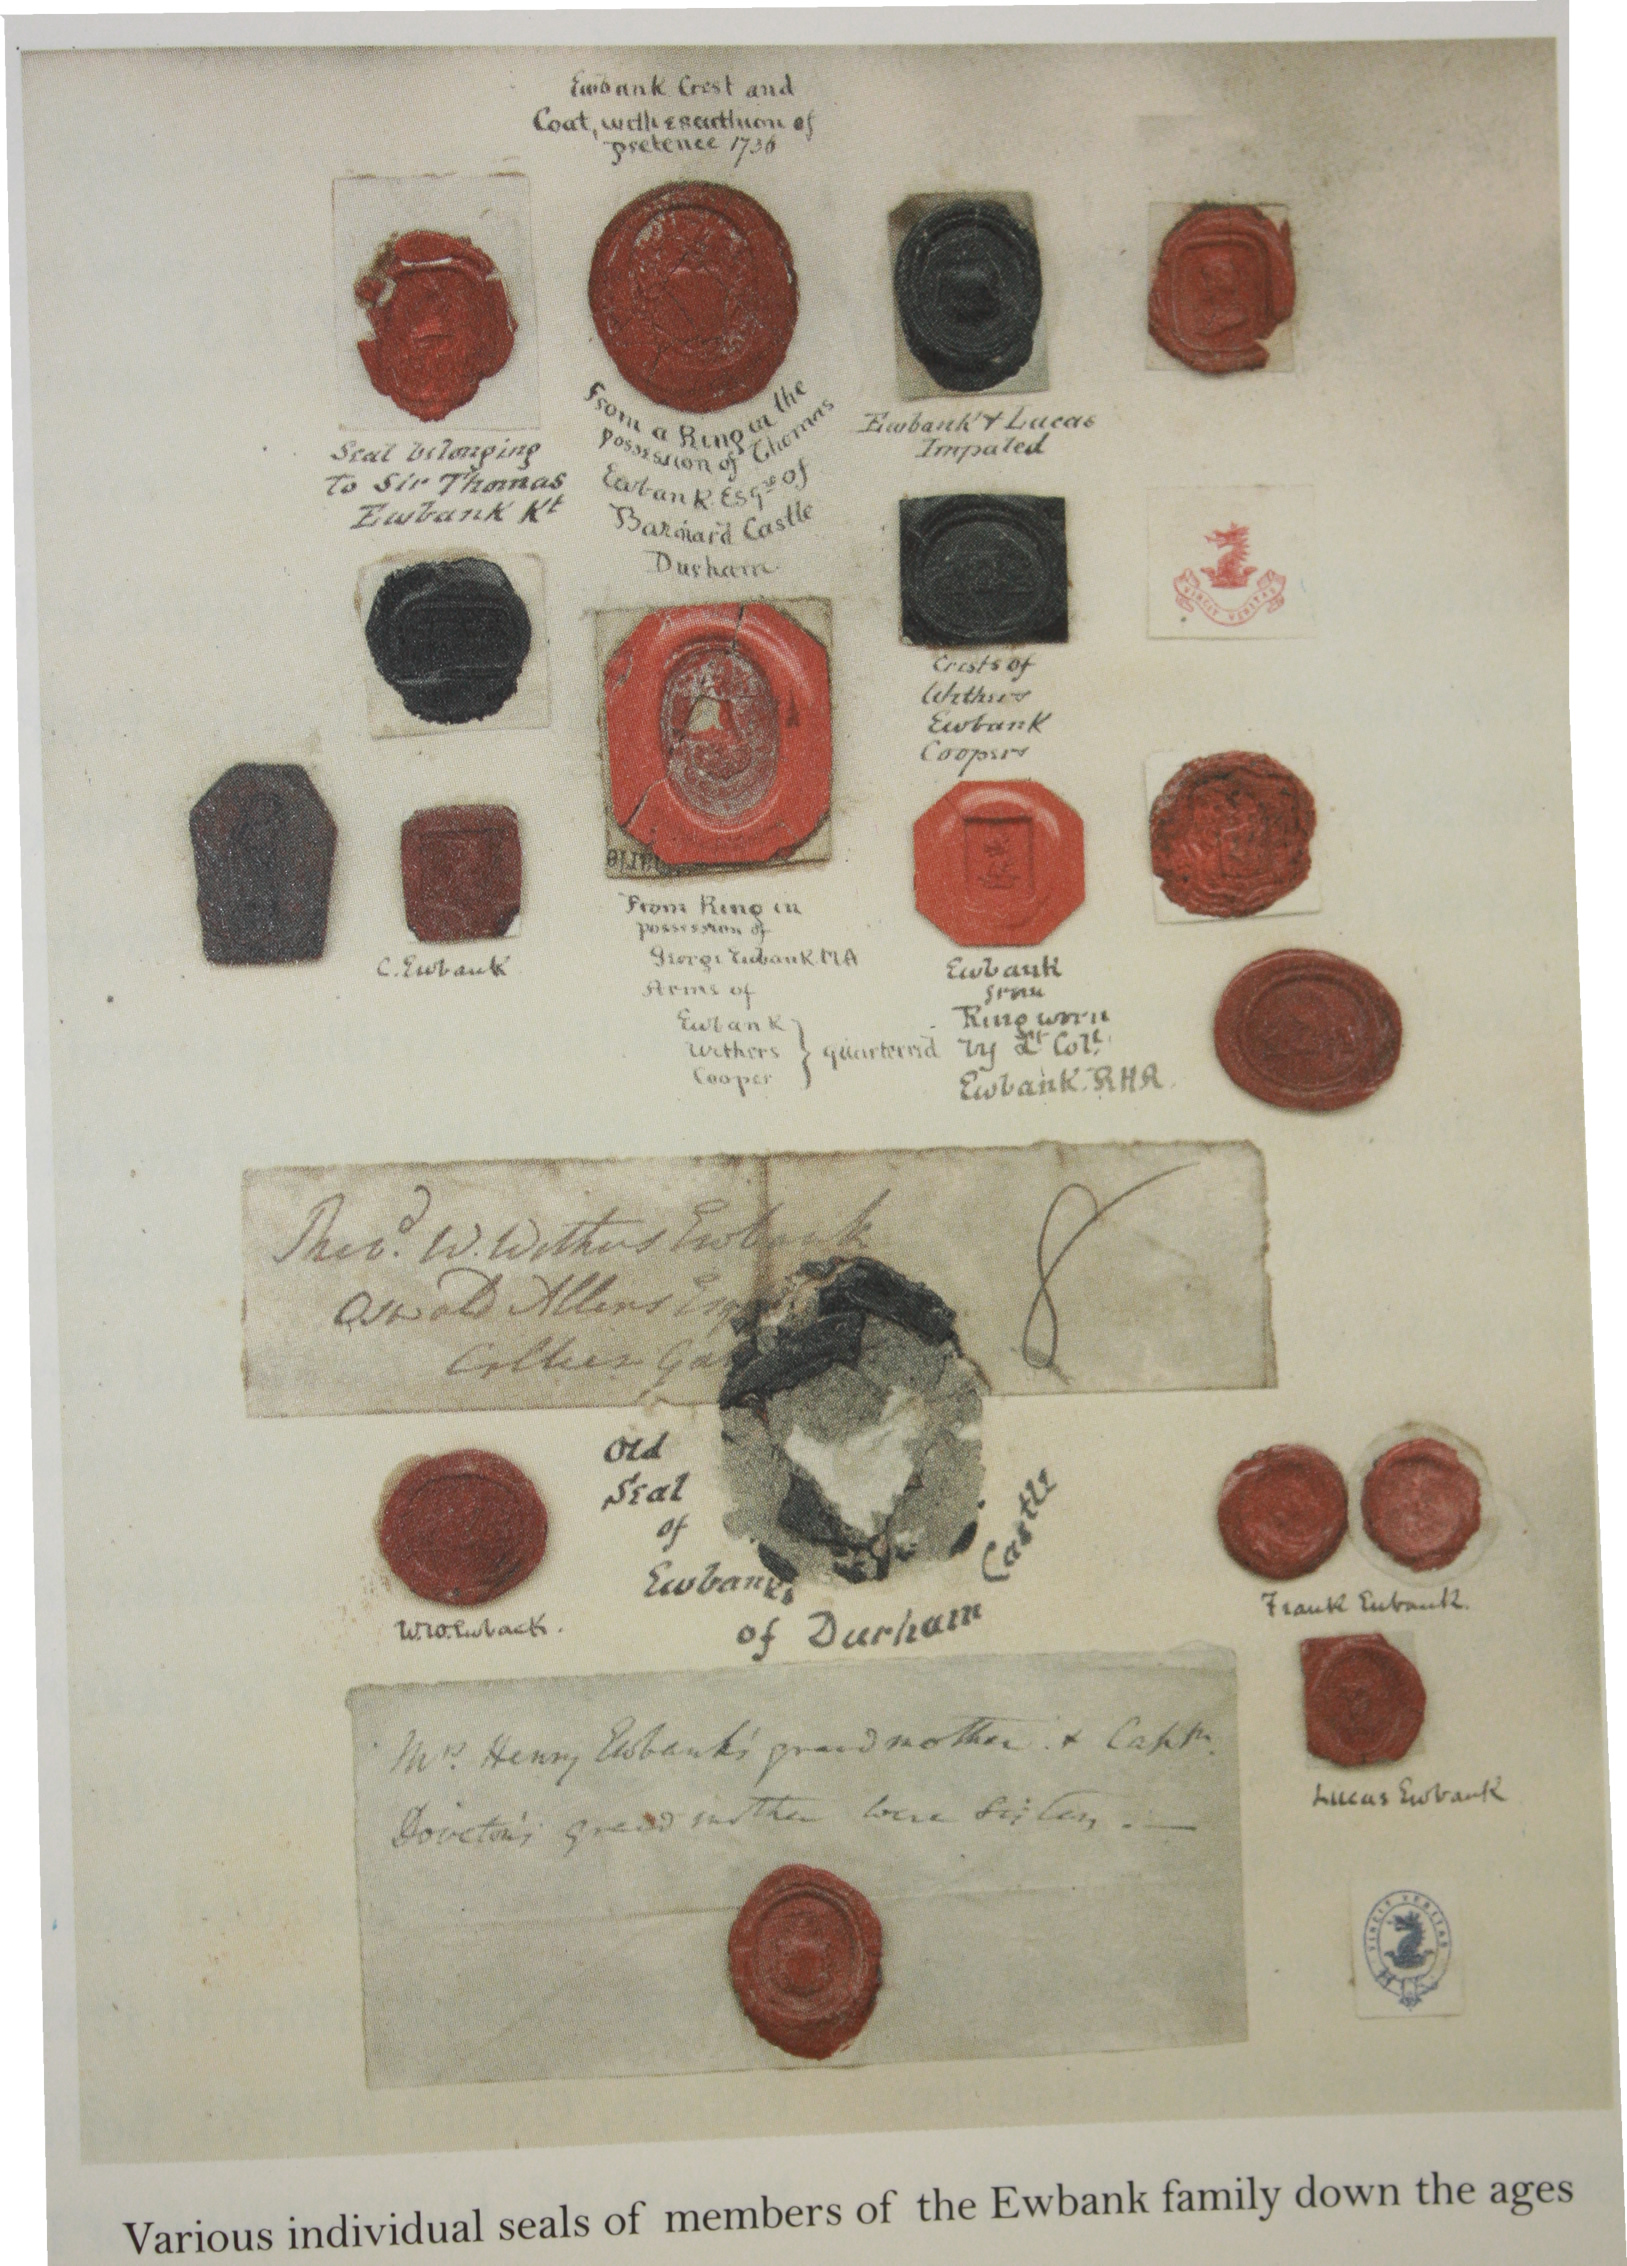 Ewbank Crest and
Coat, with escutcheon of
pretence 1736
Seal belonging
to Sir Thomas
Ewbank Kt
From a Ring in the
possession of Thomas
Ewbank Esqre of
Barnard Castle
Durham.
Ewbank & Lucas
Impaled
VINCIT VERITAS
Crests of
Withers
Ewbank
Coopers
C. Ewbank
From Ring in
possession of
George Ewbank MA
Arms of
Ewbank
Withers
Cooper
quarterrd
Ewbank
from
Ring worn
by Lt Colt
Ewbank. R.H.A.
W. Withers Ewbank
Oswald Allens Esq
Collier Ga
8
Old
Seal
of
Ewbanks
of Durham
Castle
W.W. Ewbank.
Frank Ewbank.
Lucas Ewbank
Mrs. Henry Ewbank's grandmother & Captn.
Doveton's grandmother were Sisters. —
VINCIT VERITAS
Various individual seals of members of the Ewbank family down the ages